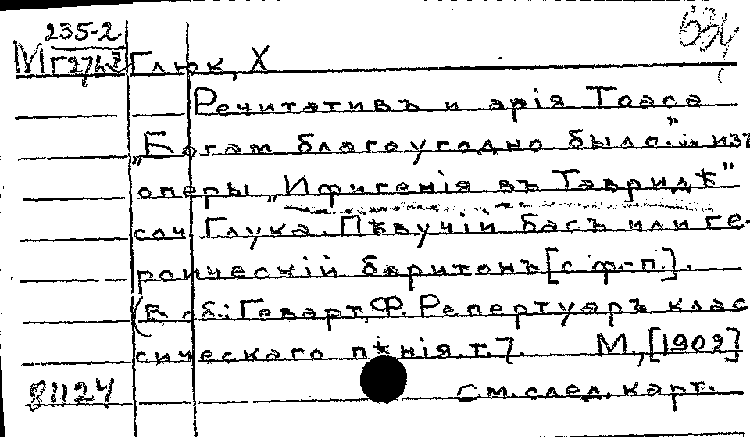 235-2
М Г274-I Глюк, Х
Речитативъ и арія Тоаса
„Богам благоугодно было." из
оперы „Ифигенія въ Тавридѣ"
соч. Глука. Пѣвучій басъ или ге-
роическій баритонъ [с ф-п.].
(В сб.: Геварт, Ф. Репертуаръ клас
сическаго пѣнія. т. 7. М., [1909]
81124 См. след. карт.